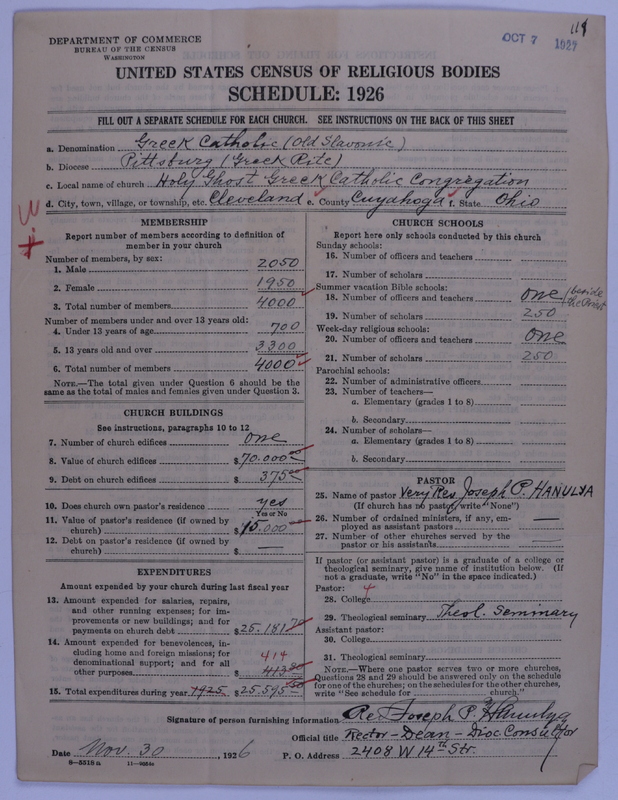 119
OCT 7 1927
DEPARTMENT OF COMMERCE
BUREAU OF THE CENSUS
WASHINGTON
UNITED STATES CENSUS OF RELIGIOUS BODIES
SCHEDULE: 1926
FILL OUT A SEPARATE SCHEDULE FOR EACH CHURCH. SEE INSTRUCTIONS ON THE BACK OF THIS SHEET
a. Denomination Greek Catholic (Old Slavonic)
b. Diocese Pittsburg (Greek Rite)
c. Local name of church Holy Ghost Greek Catholic Congregation
d. City, town, village, or township, etc. Cleveland e. County Cuyahoga f. State Ohio
MEMBERSHIP
Report number of members according to definition of member in your church
Number of members, by sex:
1. Male 2050
2. Female 1950
3. Total number of members 4000
Number of members under and over 13 years old:
4. Under 13 years of age 700
5. 13 years old and over 3300
6. Total number of members 4000
NOTE.—The total given under Question 6 should be
same as the total of males and females given under Question 3.
CHURCH BUILDINGS
See instructions, paragraphs 10 to 12
7. Number of church edifices one
8. Value of church edifices $70.000 00
9. Debt on church edifices $ 375 00
10. Does church own pastor's residence yes
Yes or No
11. Value of pastor's residence (if owned by
church) $ 15.000
12. Debt on pastor's residence (if owned by
church) $ —
EXPENDITURES
Amount expended by your church during last fiscal year
13. Amount expended for salaries, repairs,
and other running expenses; for im-
provements or new buildings; and for
payments on church debt $25.181 70
14. Amount expended for benevolences, in-
cluding home and foreign missions; for
denominational support; and for all
other purposes $ 413 80
414
15. Total expenditures during year 1925 $25.595 50
CHURCH SCHOOLS
Report here only schools conducted by this church
Sunday schools:
16. Number of officers and teachers
17. Number of scholars
Summer vacation Bible schools:
18. Number of officers and teachers one (beside the Priest
19. Number of scholars 250
Week-day religious schools:
20. Number of officers and teachers one
21. Number of scholars 250
Parochial schools:
22. Number of administrative officers
23. Number of teachers—
a. Elementary (grades 1 to 8)
b. Secondary
24. Number of scholars—
a. Elementary (grades 1 to 8)
b. Secondary
PASTOR
25. Name of pastor Very Rev. Joseph P. HANULYA
(If church has no pastor, write "None")
26. Number of ordained ministers, if any, em-
ployed as assistant pastors —
27. Number of other churches served by the
pastor or his assistants —
If pastor (or assistant pastor) is a graduate of a college or
theological seminary, give name of institution below. (If
not a graduate, write "No" in the space indicated.)
Pastor:
28. College
29. Theological seminary Theol. Seminary
Assistant pastor:
30. College
31. Theological seminary
NOTE.—Where one pastor serves two or more churches,
Questions 28 and 29 should be answered only on the schedule
for one of the churches; on the schedules for the other churches,
write "See schedule for church."
Signature of person furnishing information Rev. Joseph P. Hanulya
Official title Rector – Dean – Dioc. Consultor
Date Nov. 30, 1926 P. O. Address 2408 W 14th Str.
8—5518 a